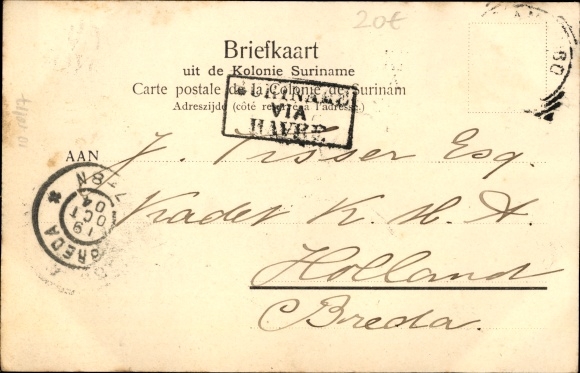 20€
Briefkaart
uit de Kolonie Suriname
Carte postale de la Colonie de Surinam
Adreszijde (côté réservé à l'adresse.)
SURINAME
VIA
HAVRE
AAN J. Visser Esq.
Kadet K. M. A.
Holland
Breda.
BREDA
19
OCT
04
7-8N